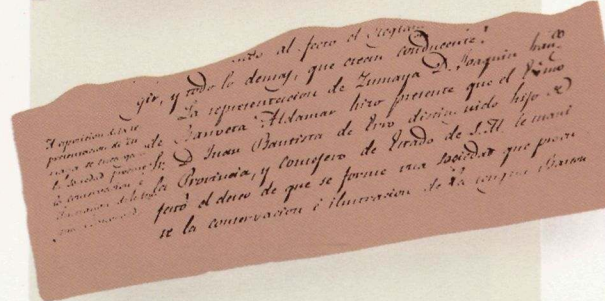 al fuero el Reglam
gir, y todo lo demas, que crean conducente.
La representacion de Zumaya D. Joaquin
de Barroeta Aldamar hizo presente que el Exmo
D. Juan Bautista de Erro distinguido hijo de
la Provincia, y consejero de Estado de S. M. le mani
festó el deseo de que se forme una sociedad que procu
re la conservacion é ilustracion de la lengua Bascon
A exposicion de la re
presentacion de Zu
maya se
la Sociedad
la conservacion é
ilustracion de la